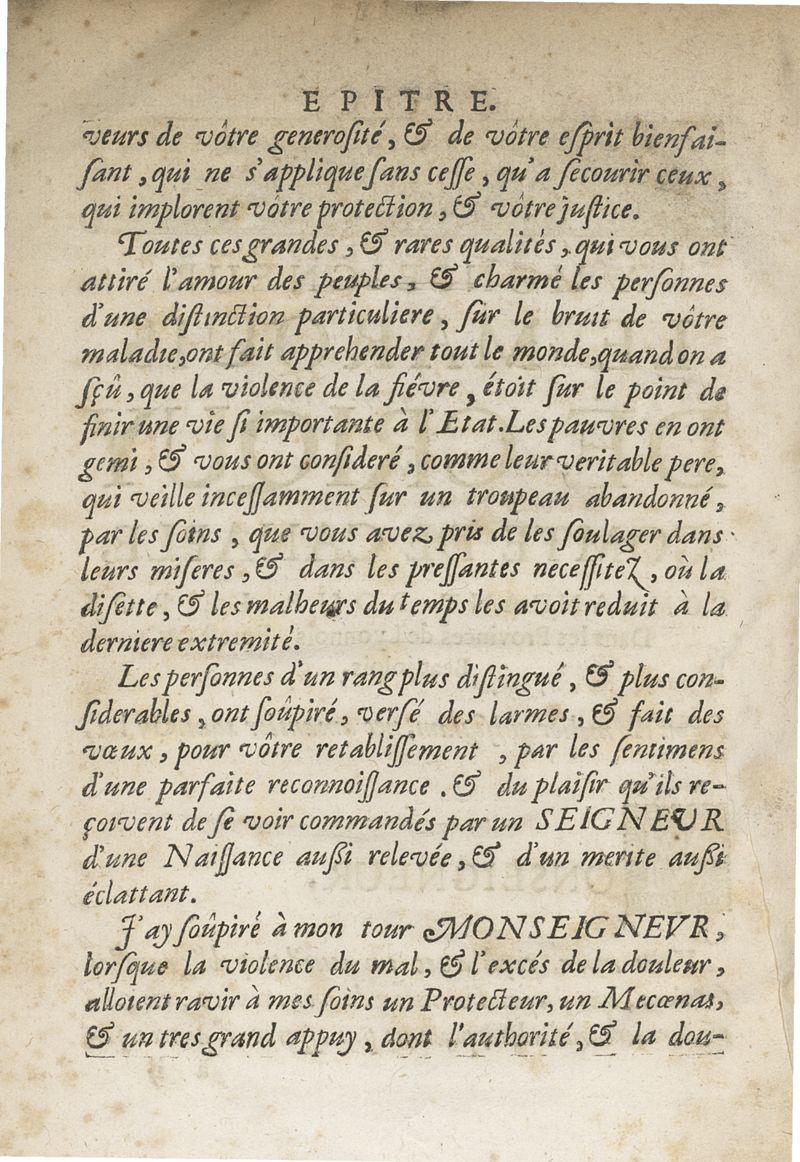 EPITRE.
veurs de vôtre generosité, & de vôtre esprit bienfai-
sant, qui ne s'applique sans cesse, qu'a secourir ceux,
qui implorent vôtre protection, & vôtre justice.
Toutes ces grandes, & rares qualités, qui vous ont
attiré l'amour des peuples, & charmé les personnes
d'une distinction particuliere, sur le bruit de vôtre
maladie, ont fait apprehender tout le monde, quand on a
sçû, que la violence de la fiévre, étoit sur le point de
finir une vie si importante à l'Etat. Les pauvres en ont
gemi, & vous ont consideré, comme leur veritable pere,
qui veille incessamment sur un troupeau abandonné,
par les soins, que vous avez pris de les soulager dans
leurs miseres, & dans les pressantes necessitez, où la
disette, & les malheurs du temps les avoit reduit à la
derniere extremité.
Les personnes d'un rang plus distingué, & plus con-
siderables, ont soûpiré, versé des larmes, & fait des
vœux, pour vôtre retablissement, par les sentimens
d'une parfaite reconnoissance. & du plaisir qu'ils re-
çoivent de se voir commandés par un SEIGNEUR
d'une Naissance aussi relevée, & d'un merite aussi
éclattant.
J'ay soûpiré à mon tour MONSEIGNEVR,
lorsque la violence du mal, & l'excés de la douleur,
alloient ravir à mes soins un Protecteur, un Mecœnas,
& un tres grand appuy, dont l'authorité, & la dou-